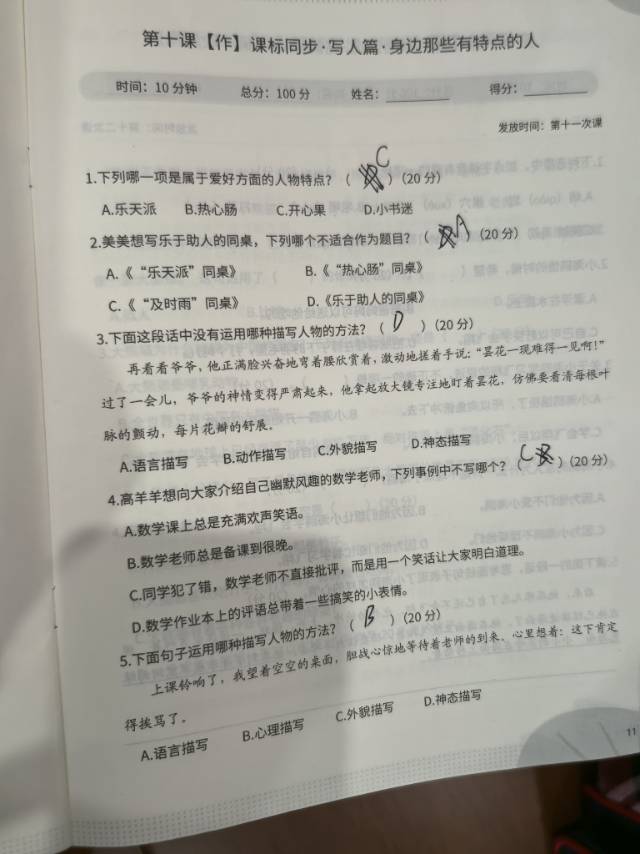 第十课【作】课标同步·写人篇·身边那些有特点的人
时间：10 分钟 总分：100 分 姓名：________ 得分：________
发放时间：第十一次课
1.下列哪一项是属于爱好方面的人物特点？（ C ）（20 分）
A.乐天派 B.热心肠 C.开心果 D.小书迷
2.美美想写乐于助人的同桌，下列哪个不适合作为题目？（ A ）（20 分）
A.《“乐天派”同桌》 B.《“热心肠”同桌》
C.《“及时雨”同桌》 D.《乐于助人的同桌》
3.下面这段话中没有运用哪种描写人物的方法？（ D ）（20 分）
再看看爷爷，他正满脸兴奋地弯着腰欣赏着，激动地搓着手说：“昙花一现难得一见啊！”
过了一会儿，爷爷的神情变得严肃起来，他拿起放大镜专注地盯着昙花，仿佛要看清每根叶
脉的颤动，每片花瓣的舒展。
A.语言描写 B.动作描写 C.外貌描写 D.神态描写
4.高羊羊想向大家介绍自己幽默风趣的数学老师，下列事例中不写哪个？（ C ）（20 分）
A.数学课上总是充满欢声笑语。
B.数学老师总是备课到很晚。
C.同学犯了错，数学老师不直接批评，而是用一个笑话让大家明白道理。
D.数学作业本上的评语总带着一些搞笑的小表情。
5.下面句子运用哪种描写人物的方法？（ B ）（20 分）
上课铃响了，我望着空空的桌面，胆战心惊地等待着老师的到来，心里想着：这下肯定
得挨骂了。
A.语言描写 B.心理描写 C.外貌描写 D.神态描写
11